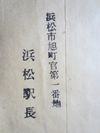 浜松市旭町官第一番地
浜松駅長